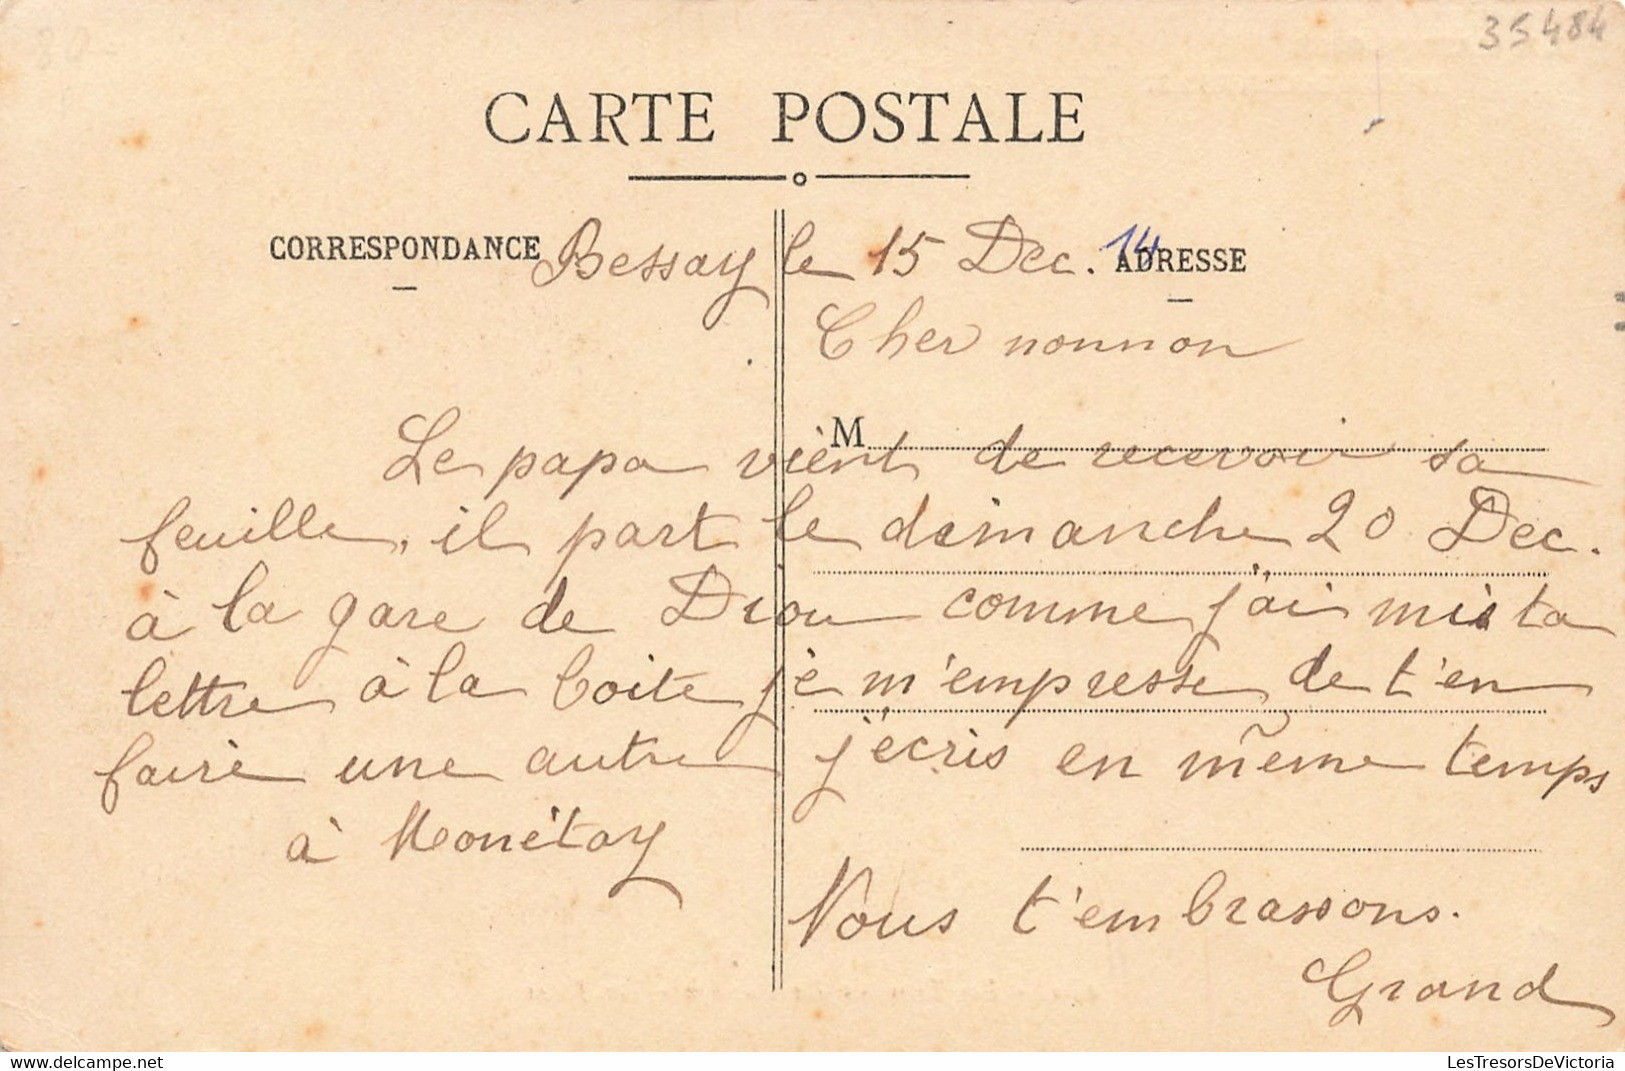 35484
CARTE POSTALE
CORRESPONDANCE Bessay le 15 Dec. 14 ADRESSE
Cher nonnon
M
Le papa vient de recevoir sa
feuille, il part le dimanche 20 Dec.
à la gare de Diou comme j'ai mis ta
lettre à la boite je m'empresse de t'en
faire une autre j'écris en même temps
à Monétay
Nous t'embrassons.
Grand
LesTresorsDeVictoria